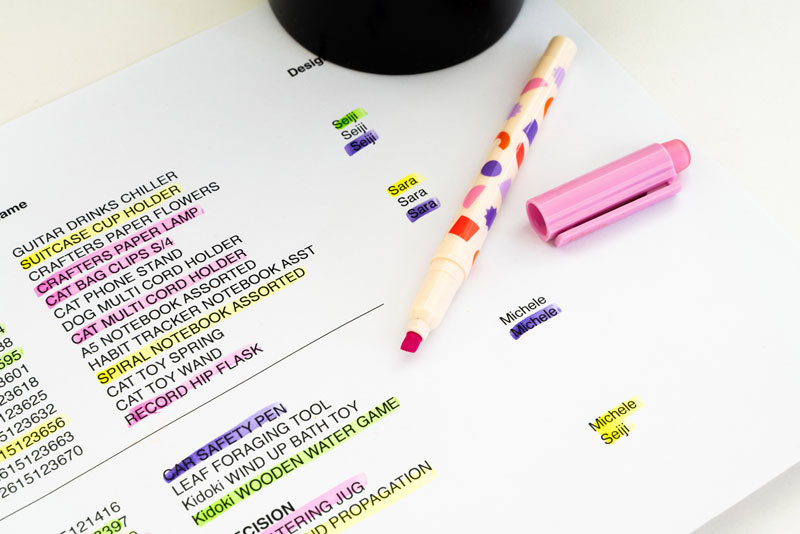 Desig
ame
Seiji
Seiji
Seiji
Sara
Sara
Sara
GUITAR DRINKS CHILLER
SUITCASE CUP HOLDER
CRAFTERS PAPER FLOWERS
CRAFTERS PAPER LAMP
CAT BAG CLIPS S/4
CAT PHONE STAND
DOG MULTI CORD HOLDER
CAT MULTI CORD HOLDER
A5 NOTEBOOK ASSORTED
HABIT TRACKER NOTEBOOK ASST
SPIRAL NOTEBOOK ASSORTED
CAT TOY SPRING
CAT TOY WAND
RECORD HIP FLASK
Michele
Michele
595
3601
23618
123625
5123632
15123656
615123663
2615123670
CAR SAFETY PEN
LEAF FORAGING TOOL
Kidoki WIND UP BATH TOY
Kidoki WOODEN WATER GAME
Michele
Seiji
5121416
397
ECISION
TERING JUG
ND PROPAGATION